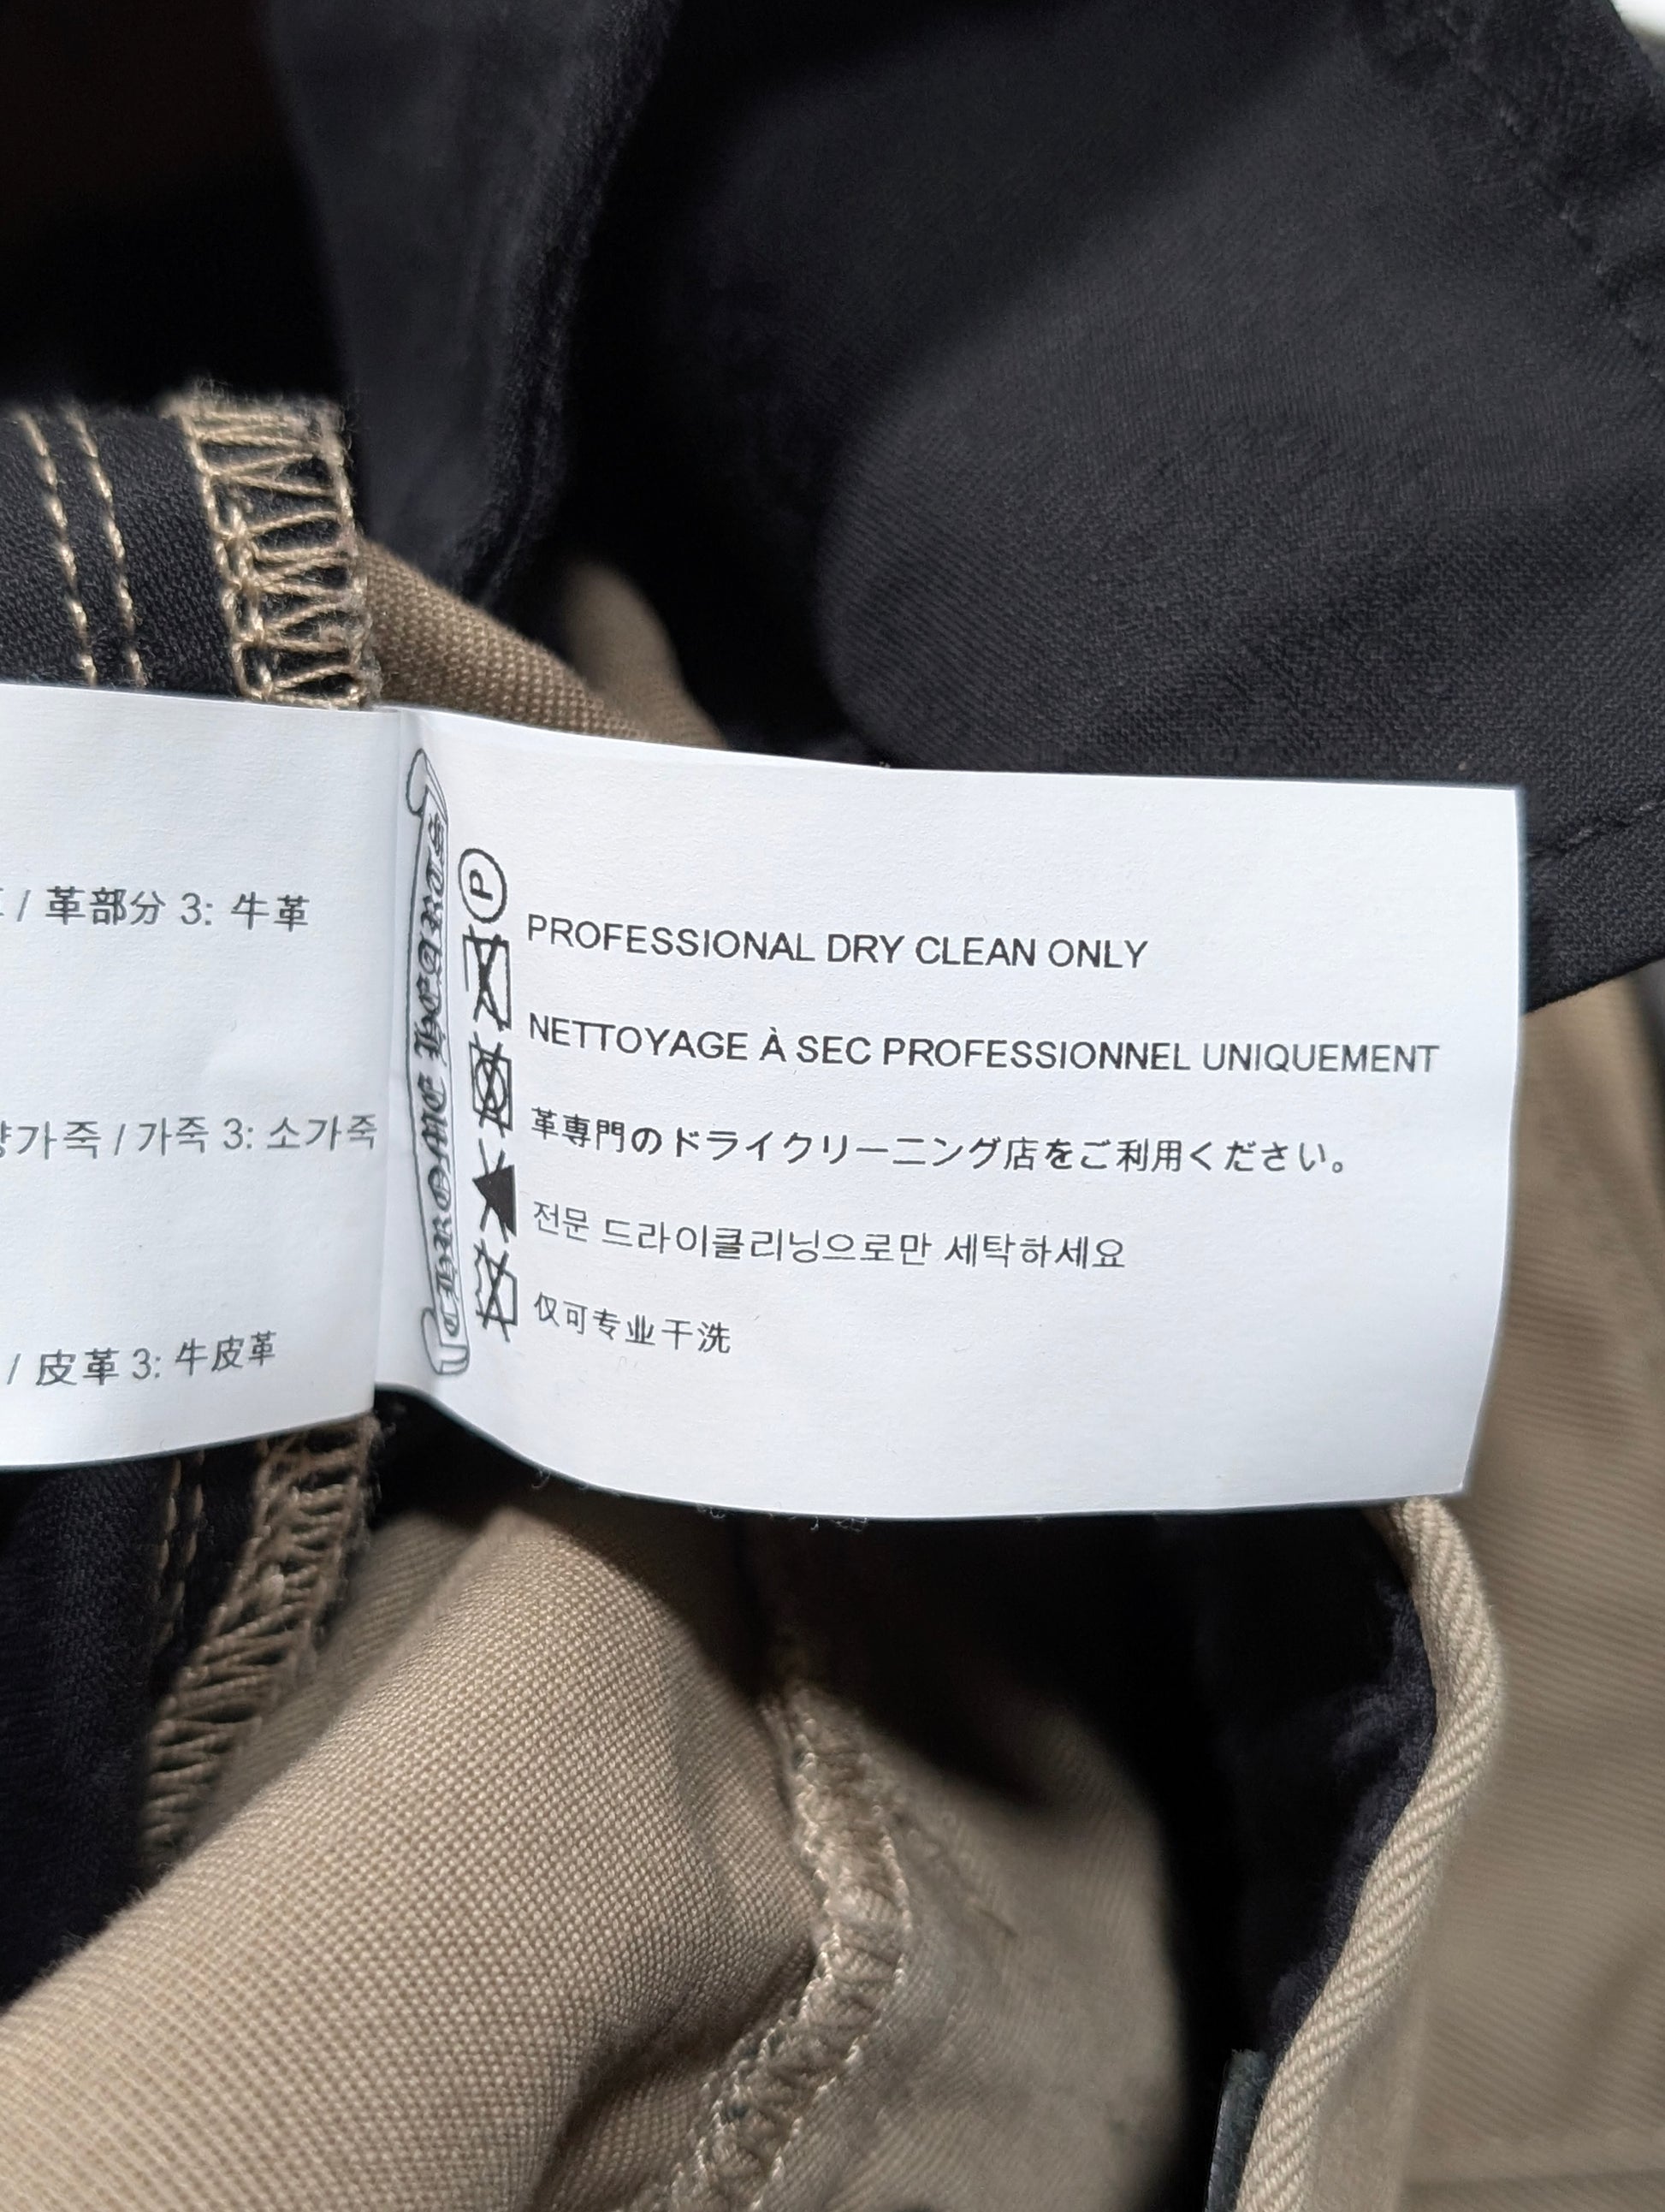 / 革部分 3: 牛革
가죽 / 가죽 3: 소가죽
/ 皮革 3: 牛皮革
CHROME HEARTS
P
PROFESSIONAL DRY CLEAN ONLY
NETTOYAGE À SEC PROFESSIONNEL UNIQUEMENT
革専門のドライクリーニング店をご利用ください。
전문 드라이클리닝으로만 세탁하세요
仅可专业干洗